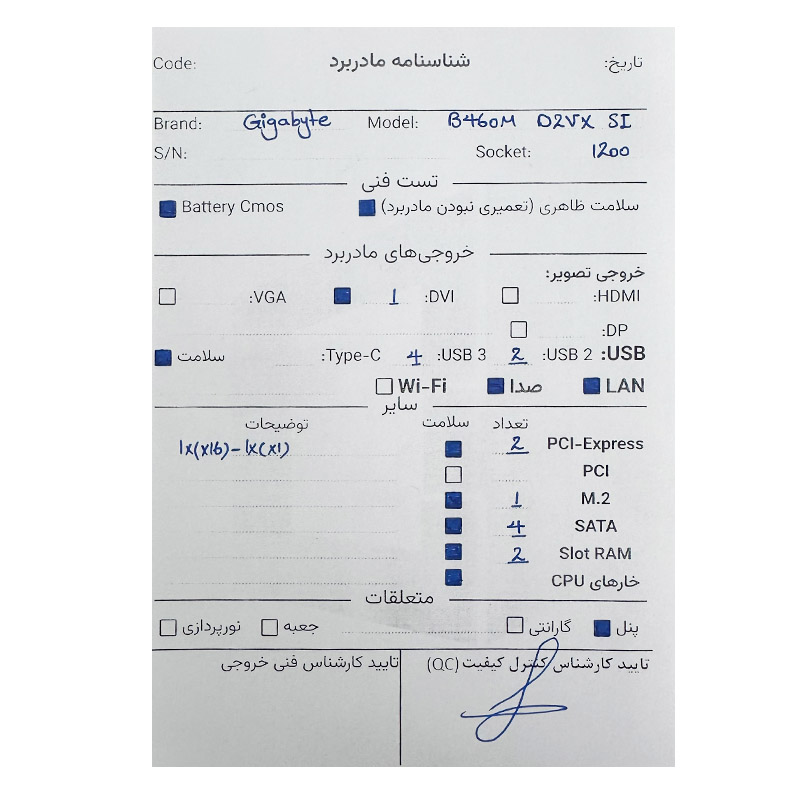 تاریخ: شناسنامه مادربرد Code:
Brand: Gigabyte Model: B460M D2VX SI
S/N: Socket: 1200
تست فنی
سلامت ظاهری (تعمیری نبودن مادربرد) Battery Cmos
خروجی‌های مادربرد
خروجی تصویر:
HDMI: DVI: 1 VGA:
DP:
USB: USB 2: 2 USB 3: 4 Type-C: سلامت
LAN صدا Wi-Fi
سایر
تعداد سلامت توضیحات
PCI-Express 2 1x(x16)-1x(x1)
PCI
M.2 1
SATA 4
Slot RAM 2
خارهای CPU
متعلقات
پنل گارانتی جعبه نورپردازی
تایید کارشناس کنترل کیفیت (QC) تایید کارشناس فنی خروجی